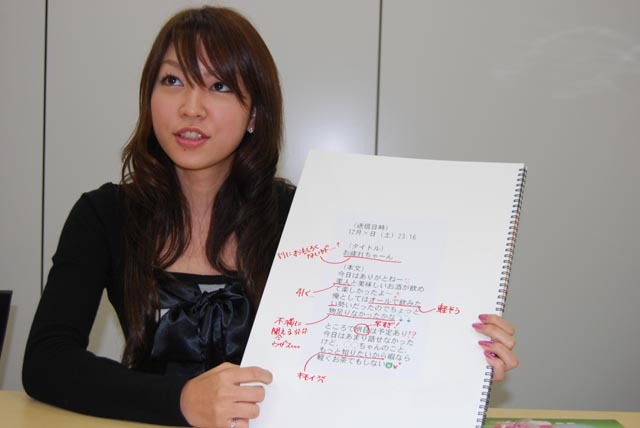 (送信日時)
12月×日(土)23:16
(タイトル)
お疲れちゃーん
別におもしろくないが…?
(本文)
今日はありがとねー
軍人と美味しいお酒が飲め
て楽しかったよー
引く
俺としてはオールで飲みた
い勢いだったのでちょっと
軽そう
物足りなかったかな
不満に
聞える
ウザス…
早すぎ!
ところで明日は予定あり!?
今日はあまり話せなかった
けど、 ちゃんのこと、
もっと知りたいから暇なら
軽くお茶でもしない
キモイ